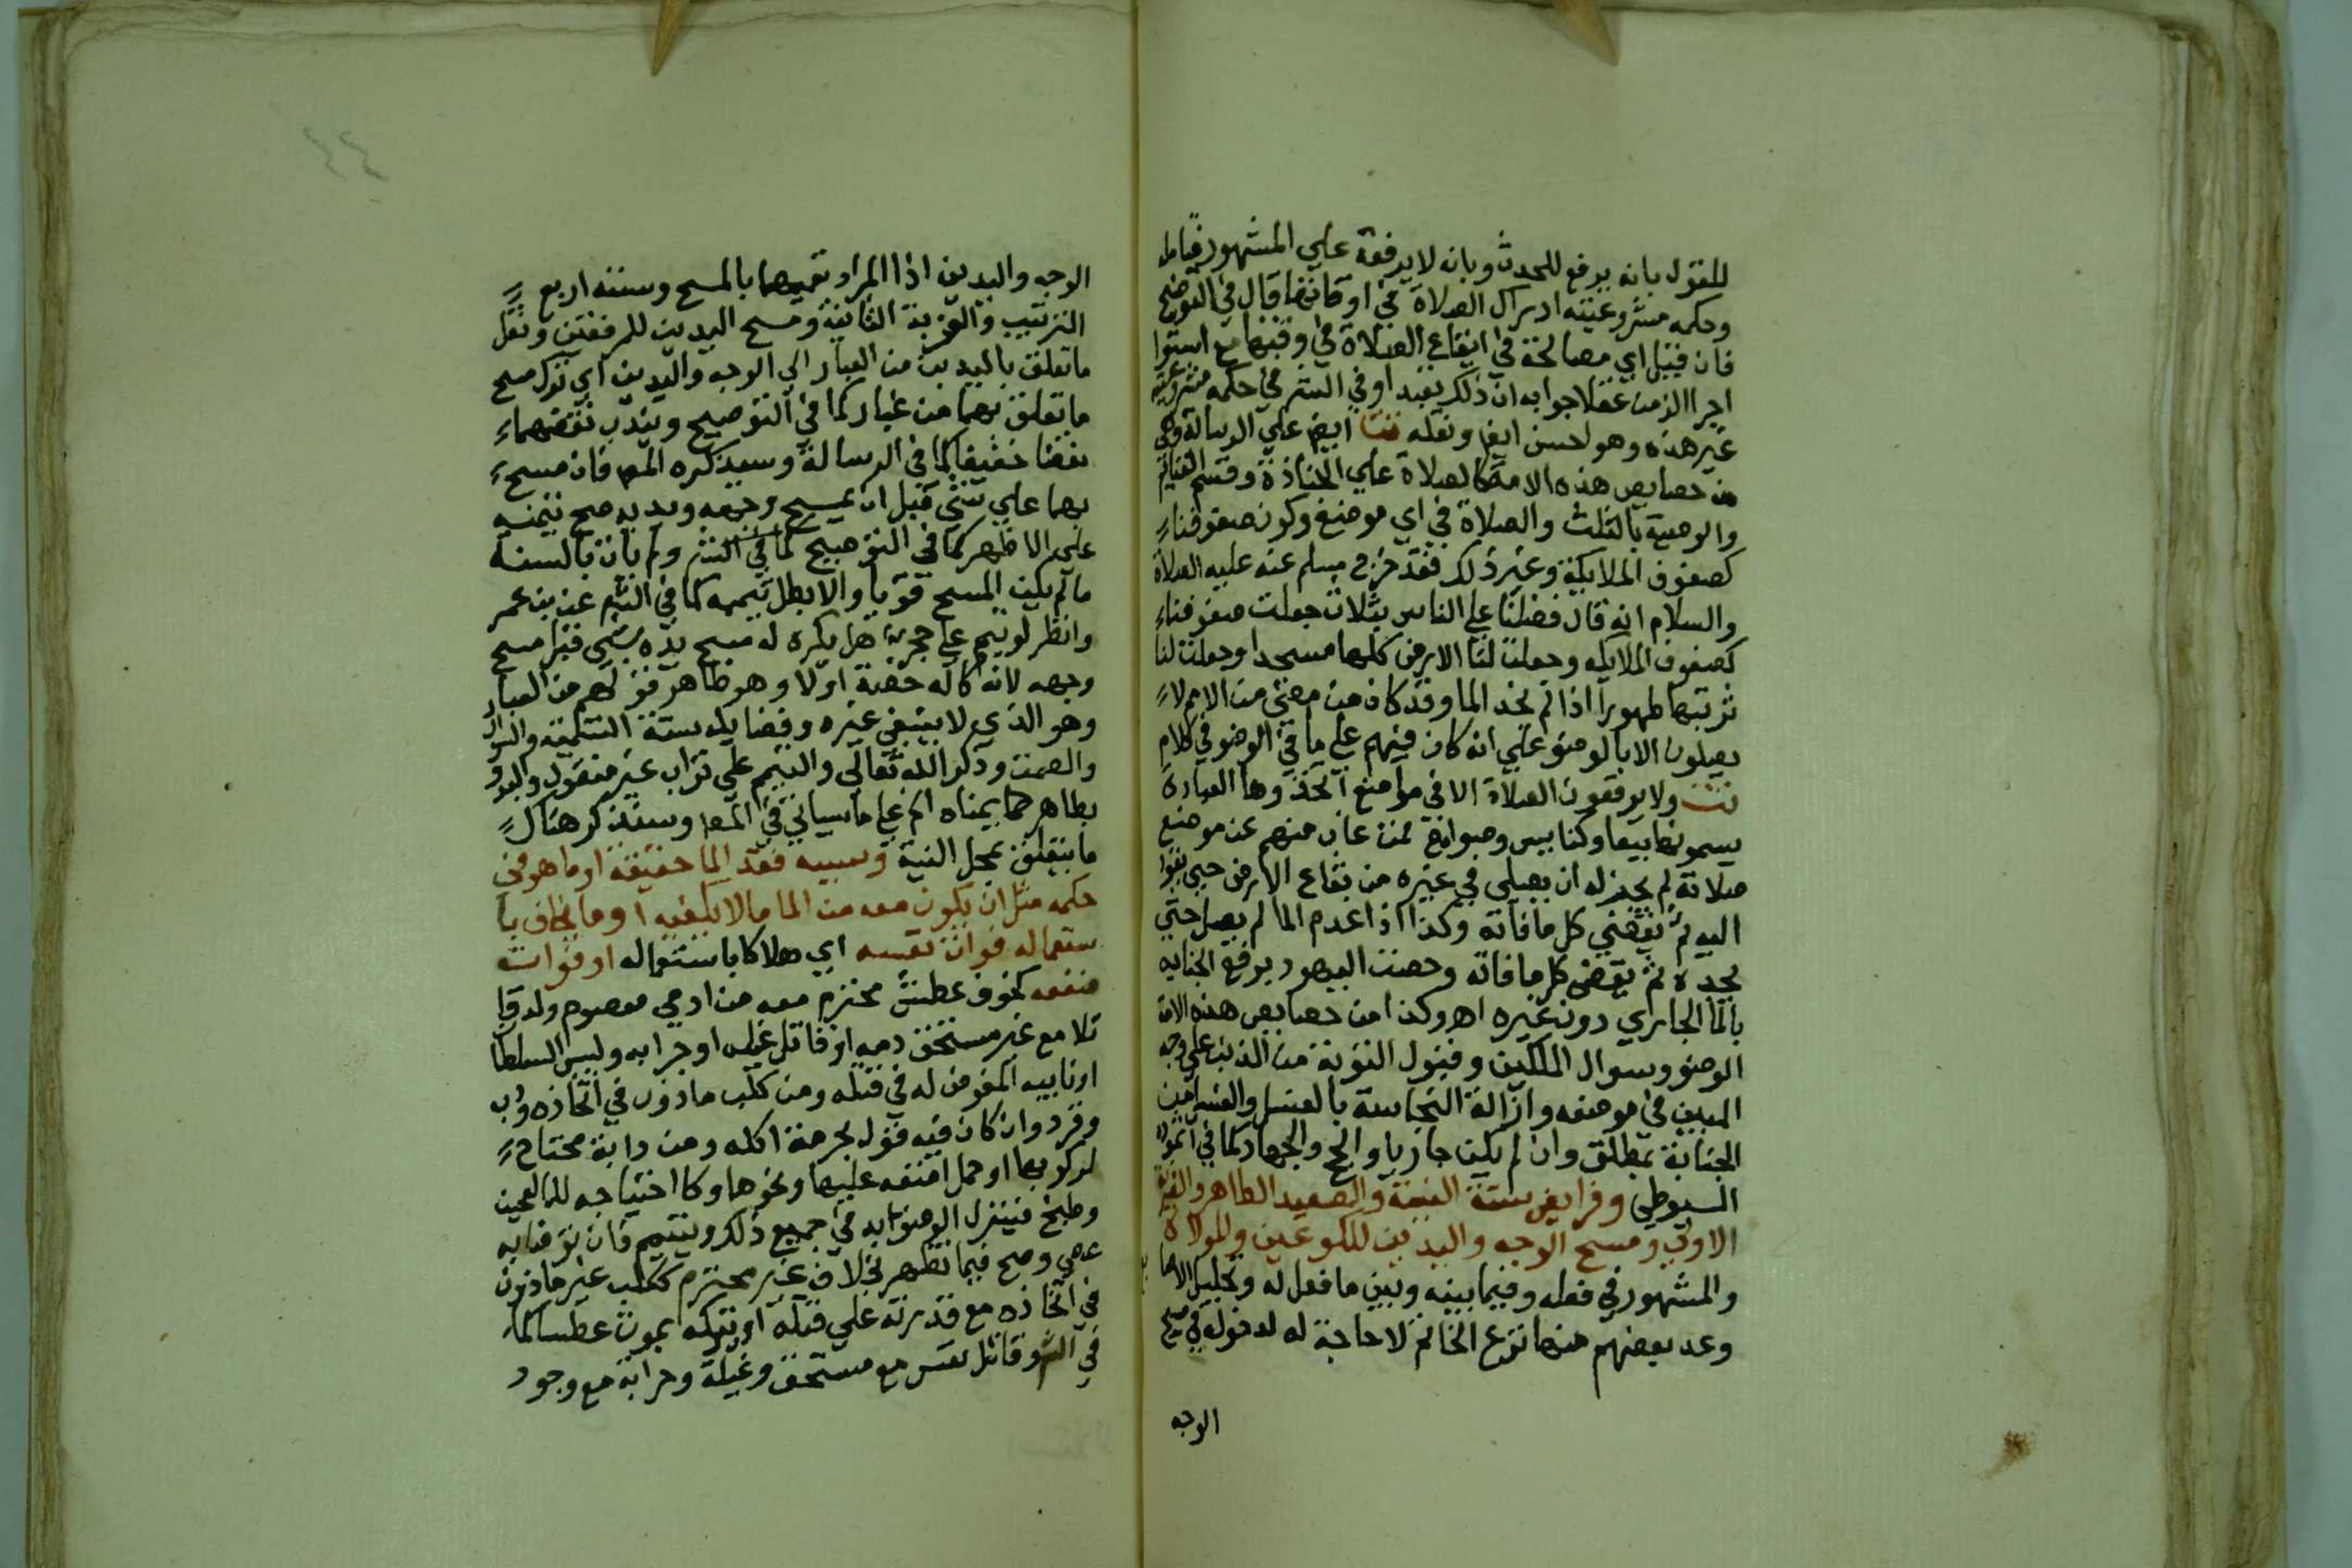 للقول بانه يرفع للحدث وبانه لا يرفعه علي المشهور فتامل
وحكمه مشروعيته ادراك الصلاة في اوقاتها قال في التوضيح
فان قيل اي مصالحة في ايقاع الصلاة في وقتها مع استوا
اجرا الزمن عقلا جوابه ان ذلك تعبد او في الشرع حكمه مشروعيته
غير هذه وهو احسن ايضا ونقله تت ايضم علي الرسالة وهي
من خصايص هذه الامة كالصلاة علي الجنازة وقسم الغنايم
والوصية بالثلث والصلاة في اي موضع وكون صفوفنا
كصفوف الملايكة وغير ذلك فقد خرج مسلم عنه عليه الصلاة
والسلام انه قال فضلنا علي الناس بثلاث جعلت صفوفنا
كصفوف الملايكه وجعلت لنا الارض كلها مسجدا وجعلت لنا
تربتها طهورا اذا لم نجد الما وقد كان من مضي من الامم لا
يصلون الا بالوضو علي انه كان فيهم علي ما في الوضو في كلام
تت ولا يوقعون الصلاة الا في مواضع اتخذوها للعبادة
يسمونها بيعا وكنايس وصوامع فمن غاب منهم عن موضع
صلاته لم يجز له ان يصلي في غيره من بقاع الارض حتي يعود
اليه ثم يقضي كل ما فاته وكذا اذا عدم الما لم يصل حتي
يجده ثم يقضي كل ما فاته وخصت اليهود برفع الجنابه
بالما الجاري دون غيره اهـ وكذا من خصايص هذه الامة
الوضو وسوال الملكين وقبول التوبة من الذنب علي وجه
المبين في موضعه وازالة النجاسة بالغسل والغسل من
الجنابة بمطلق وان لم يكن جاريا والحج والجهاد كما في انموذج
السيوطي وفرايض ستة النية والصعيد الطاهر والضربة
الاولي ومسح الوجه واليدين للكوعين والموالاة
والمشهور في فعله وفيما بينه وبين ما فعل له وتخليل الاصا
وعد بعضهم منها نزع الخاتم لا حاجة له لدخوله في مسح
الوجه
الوجه واليدين اذ المراد تعميمهما بالمسح وسننه اربع
الترتيب والضربة الثانية ومسح اليدين للمرفقين ونقل
ما تعلق باليدين من الغبار الي الوجه واليدين اي ترك مسح
ما تعلق بهما من غبار كما في التوضيح ويندب نفضهما
نفضا خفيفا كما في الرسالة وسيذكره المص فان مسح
بهما علي شي قبل ان يمسح وجهه ويديه صح تيممه
علي الاظهر كما في التوضيح كما في الشر ولم يات بالسنة
ما لم يكن المسح قويا والا بطل تيممه كما في الشم عن بن عمر
وانظر لو تيمم علي حجر هل يكره له مسح يده بشي قبل مسح
وجهه لانه كاله خصة اولا وهو ظاهر قولهم من الغبار
وهو الذي لا ينبغي غيره وفضايله ستة التسمية والسواك
والصمت وذكر الله تعالي والتيمم علي تراب غير منقول والبدو
بظاهر يمناه الخ علي ما سياتي في المص وسنذكر هناك
ما يتعلق بمحل النية وسببه فقد الما حقيقة او ما هو في
حكمه مثل ان يكون معه من الما ما لا يكفيه او ما يخاف با
ستعماله فوات نفسه اي هلاكا باستعماله او فوات
منفعه كخوف عطش محترم معه من ادمي معصوم ولو قا
تلا مع غير مستحق دمه او قاتل غيلة او حرابه وليس السلطا
او نايبه المفوض له في قتله ومن كلب ماذون في اتخاذه ودب
وقرد وان كان فيه قول بحرمة اكله ومن دابة محتاج
لركوبها او حمل امتعه عليها ونحوها وكا احتياجه للعجين
وطبخ فيترك الوضو به في جميع ذلك ويتيمم فان توضا به
عصي وصح فيما نظهر بخلاف غير محترم ككلب غير ماذون
في اتخاذه مع قدرته علي قتله او تركه يموت عطشا كما
في الشر وقاتل نفس مع مستحق وغيلة وحرابة مع وجود